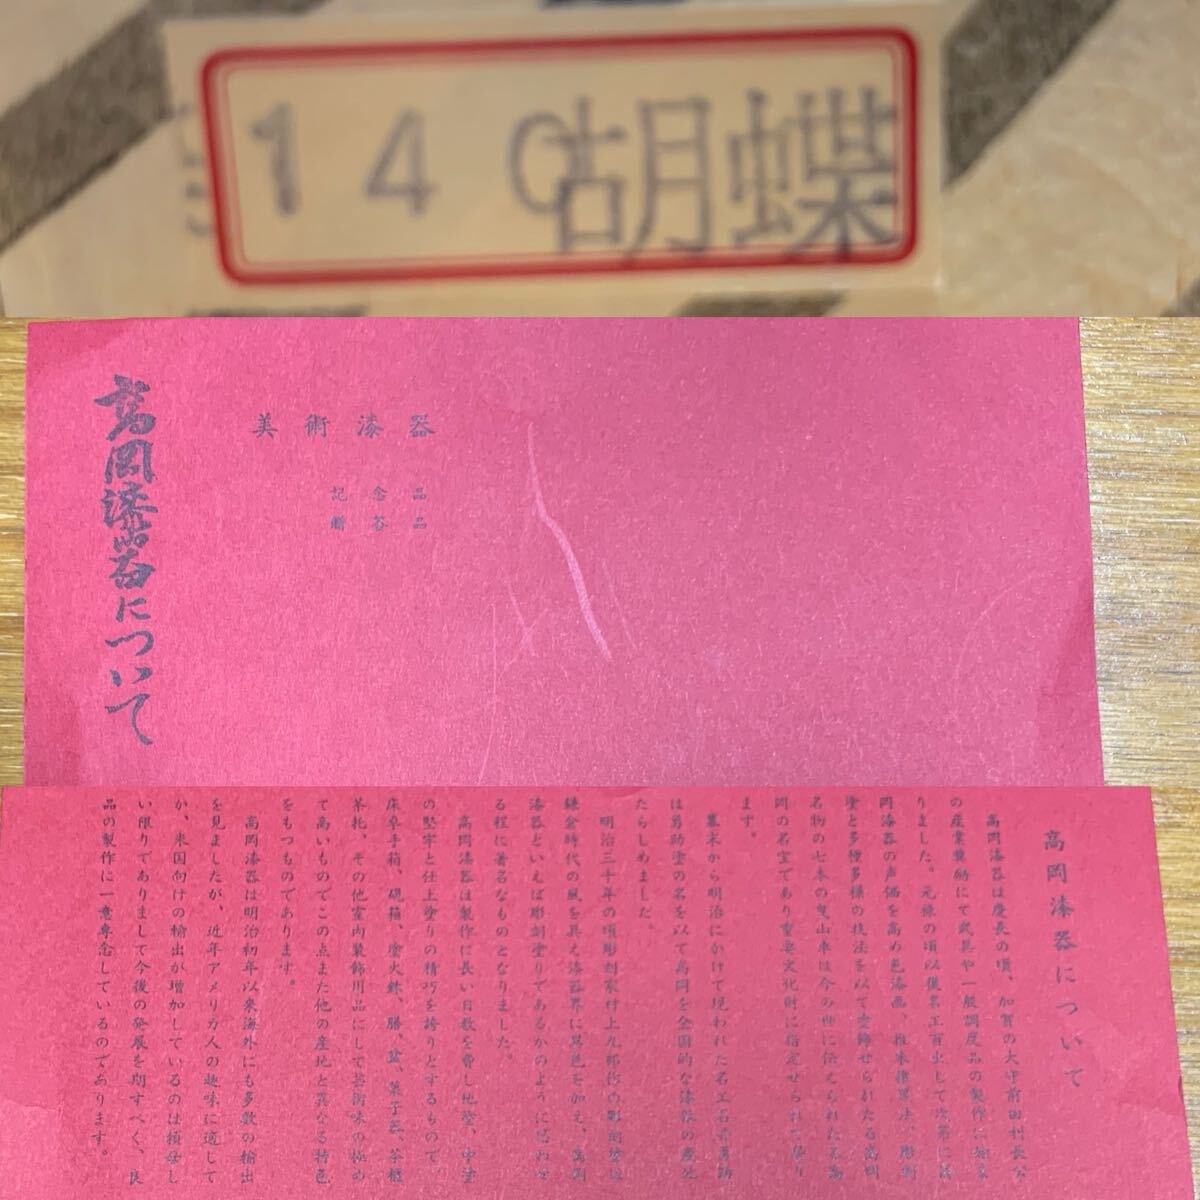 14C胡蝶
高岡漆器について
美術漆器
記念品
贈答品
高岡漆器について
高岡漆器は慶長の頃、加賀の大守前田利長公
の産業奨励にて武具や一般調度品の製作に始ま
りました。元禄の頃以後名工百出して次第に高
岡漆器の声価を高め色漆画、推朱推黒法、彫刻
塗と多種多様の技法を以て壹飾せられた名高岡
名物の七本の曳山車は今の世に伝えられた高
岡の名宝であり重要文化財に指定せられて居り
ます。
幕末から明治にかけて現われた名工石井勇助
は勇助塗の名を以て高岡を全国的な漆器の産地
たらしめました。
明治三十年の頃彫刻家村上九郎作の彫刻塗は
鎌倉時代の風を具え漆器界に異色を加え、高岡
漆器といえば彫刻塗りであるかのように思わせ
る程に著名なものとなりました。
高岡漆器は製作に長い日数を費し地塗、中塗
の堅牢と仕上塗りの精巧を誇りとするもので、
床卓手箱、硯箱、塗火鉢、膳、盆、菓子器、茶櫃
茶托、その他室内装飾用品にして芸術味の極め
て高いものでこの点また他の産地と異なる特色
をもつものであります。
高岡漆器は明治初年以来海外にも多数の輸出
を見ましたが、近年アメリカ人の趣味に適して
か、米国向けの輸出が増加しているのは頼母し
い限りでありまして今後の発展を期すべく、良
品の製作に一意専念しているのであります。